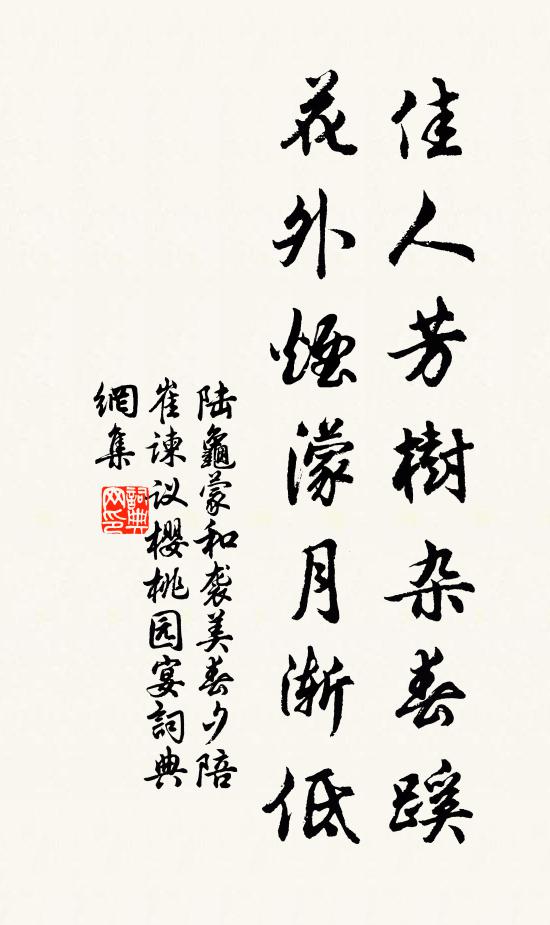 佳人芳樹杂春蹊
花外煙濛月渐低
陆龜蒙和袭美春夕陪
崔諫议櫻桃园宴詞典
網集
詞典网印